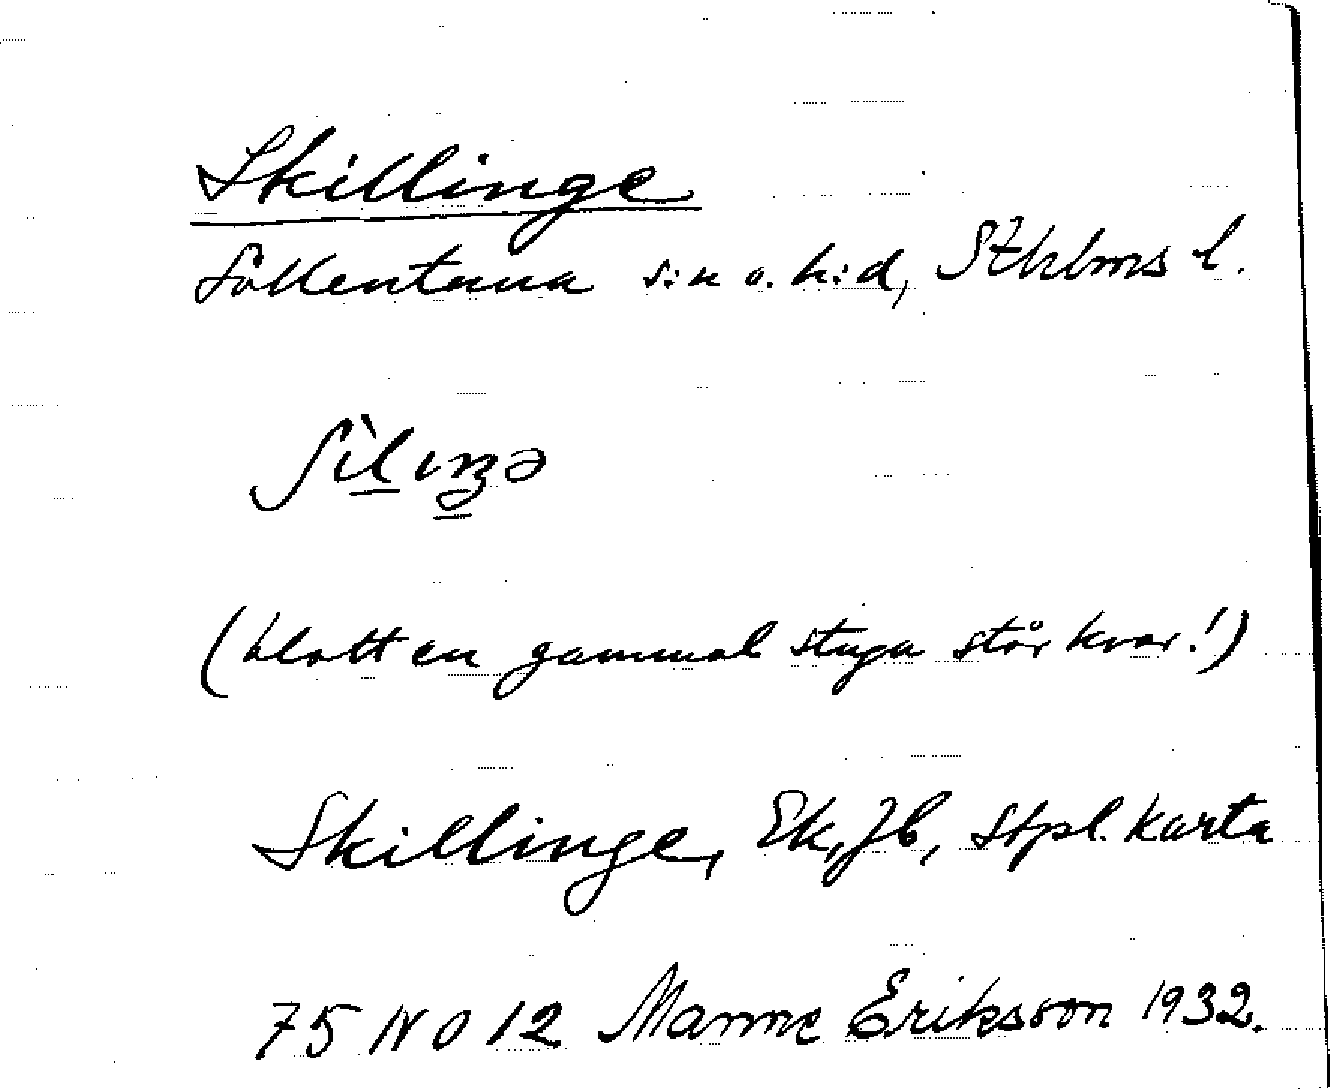 Skillinge
Sollentuna s:n o. h:d, Sthlms l.
(blott en gammal stuga står kvar!)
Skillinge, Ek, Jb, Stpl. karta
75 NO 12 Manne Eriksson 1932.